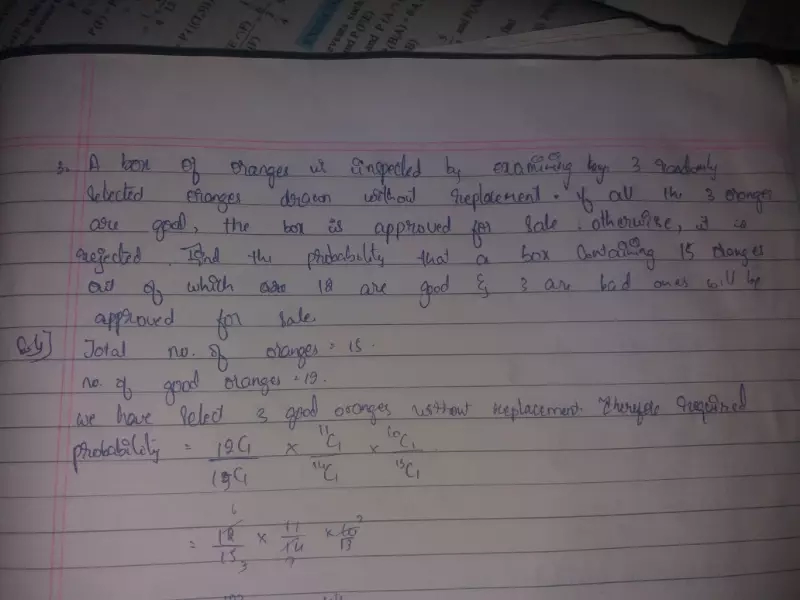 3. A box of oranges is inspected by examining by 3 randomly
selected oranges drawn without replacement. If all the 3 oranges
are good, the box is approved for sale, otherwise, it is
rejected. Find the probability that a box containing 15 oranges
out of which are 12 are good & 3 are bad ones will be
approved for sale.
Sol]
Total no. of oranges = 15.
no. of good oranges = 12.
we have select 3 good oranges without replacement therefore required
probability = 12C₁/15C₁ × ¹¹C₁/¹⁴C₁ × ¹⁰C₁/¹³C₁
= 12/15 × 11/14 × 10/13